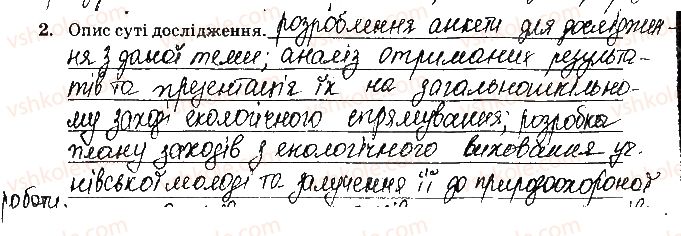 2. Опис суті дослідження. розроблення анкети для дослідження
ня з даної теми; аналіз отриманих результа-
тів та презентація їх на загальношкільно-
му заході екологічного спрямування; розробка
плану заходів з екологічного виховання уч-
нівської молоді та залучення її до природоохороної
роботи.